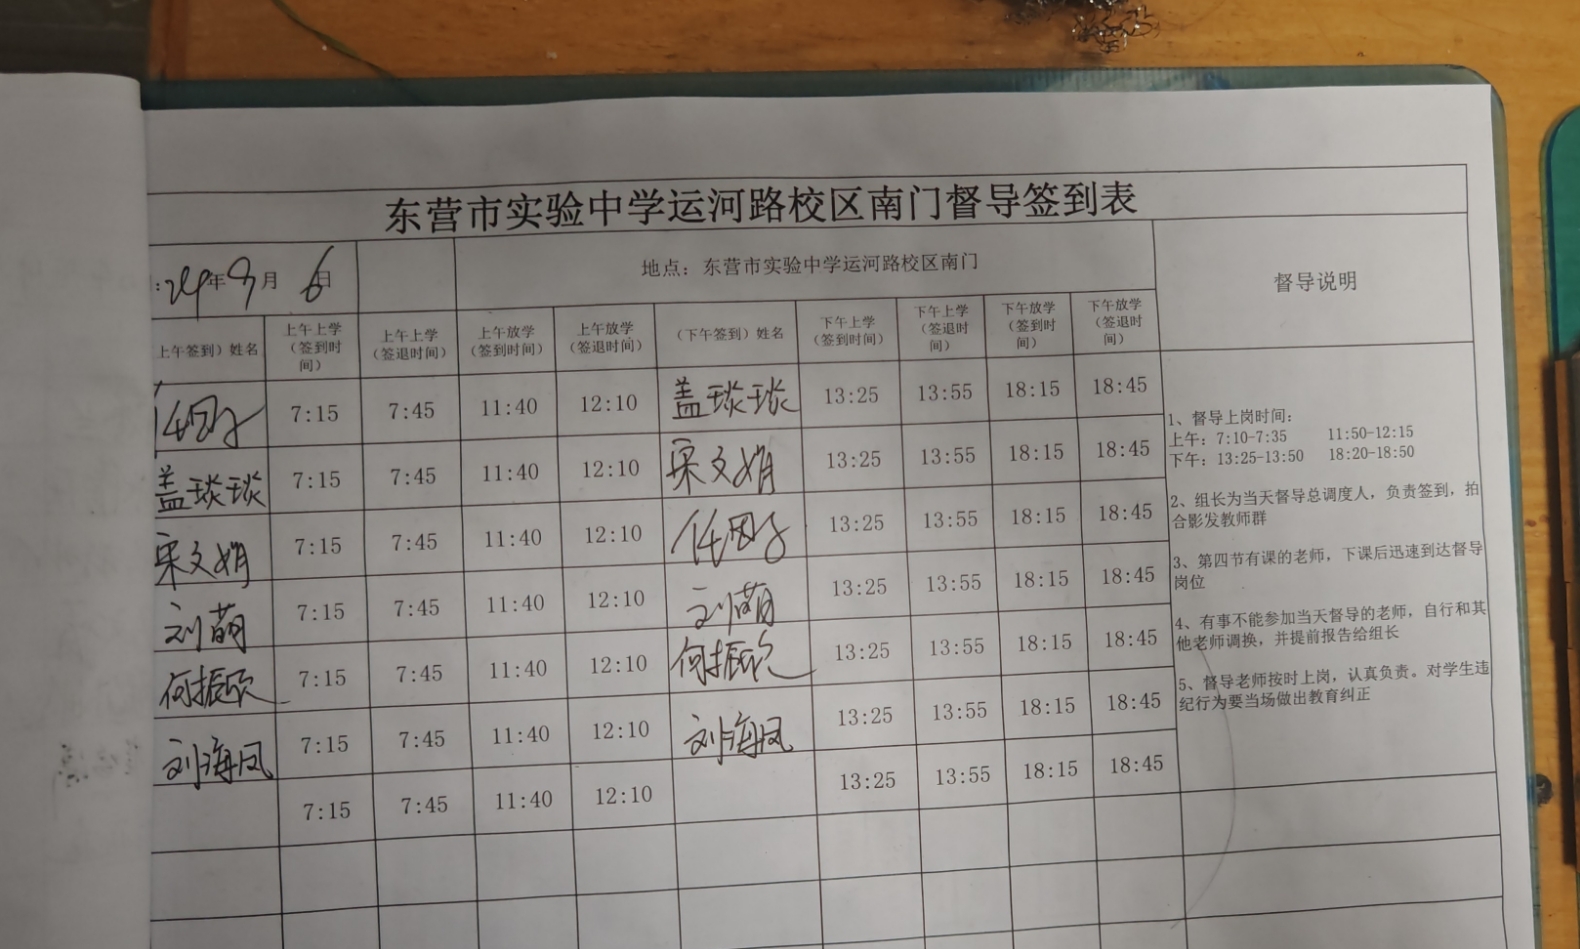 东营市实验中学运河路校区南门督导签到表
:24年9月6日
地点：东营市实验中学运河路校区南门
督导说明
上午签到）姓名 上午上学（签到时间） 上午上学（签退时间） 上午放学（签到时间） 上午放学（签退时间） （下午签到）姓名 下午上学（签到时间） 下午上学（签退时间） 下午放学（签到时间） 下午放学（签退时间）
7:15 7:45 11:40 12:10 盖琰琰 13:25 13:55 18:15 18:45
盖琰琰 7:15 7:45 11:40 12:10 宋文娟 13:25 13:55 18:15 18:45
宋文娟 7:15 7:45 11:40 12:10 13:25 13:55 18:15 18:45
刘萌 7:15 7:45 11:40 12:10 刘萌 13:25 13:55 18:15 18:45
何振欣 7:15 7:45 11:40 12:10 何振欣 13:25 13:55 18:15 18:45
刘海凤 7:15 7:45 11:40 12:10 刘海凤 13:25 13:55 18:15 18:45
7:15 7:45 11:40 12:10 13:25 13:55 18:15 18:45
1、督导上岗时间：
上午：7:10-7:35 11:50-12:15
下午：13:25-13:50 18:20-18:50
2、组长为当天督导总调度人，负责签到，拍
合影发教师群
3、第四节有课的老师，下课后迅速到达督导
岗位
4、有事不能参加当天督导的老师，自行和其
他老师调换，并提前报告给组长
5、督导老师按时上岗，认真负责。对学生违
纪行为要当场做出教育纠正